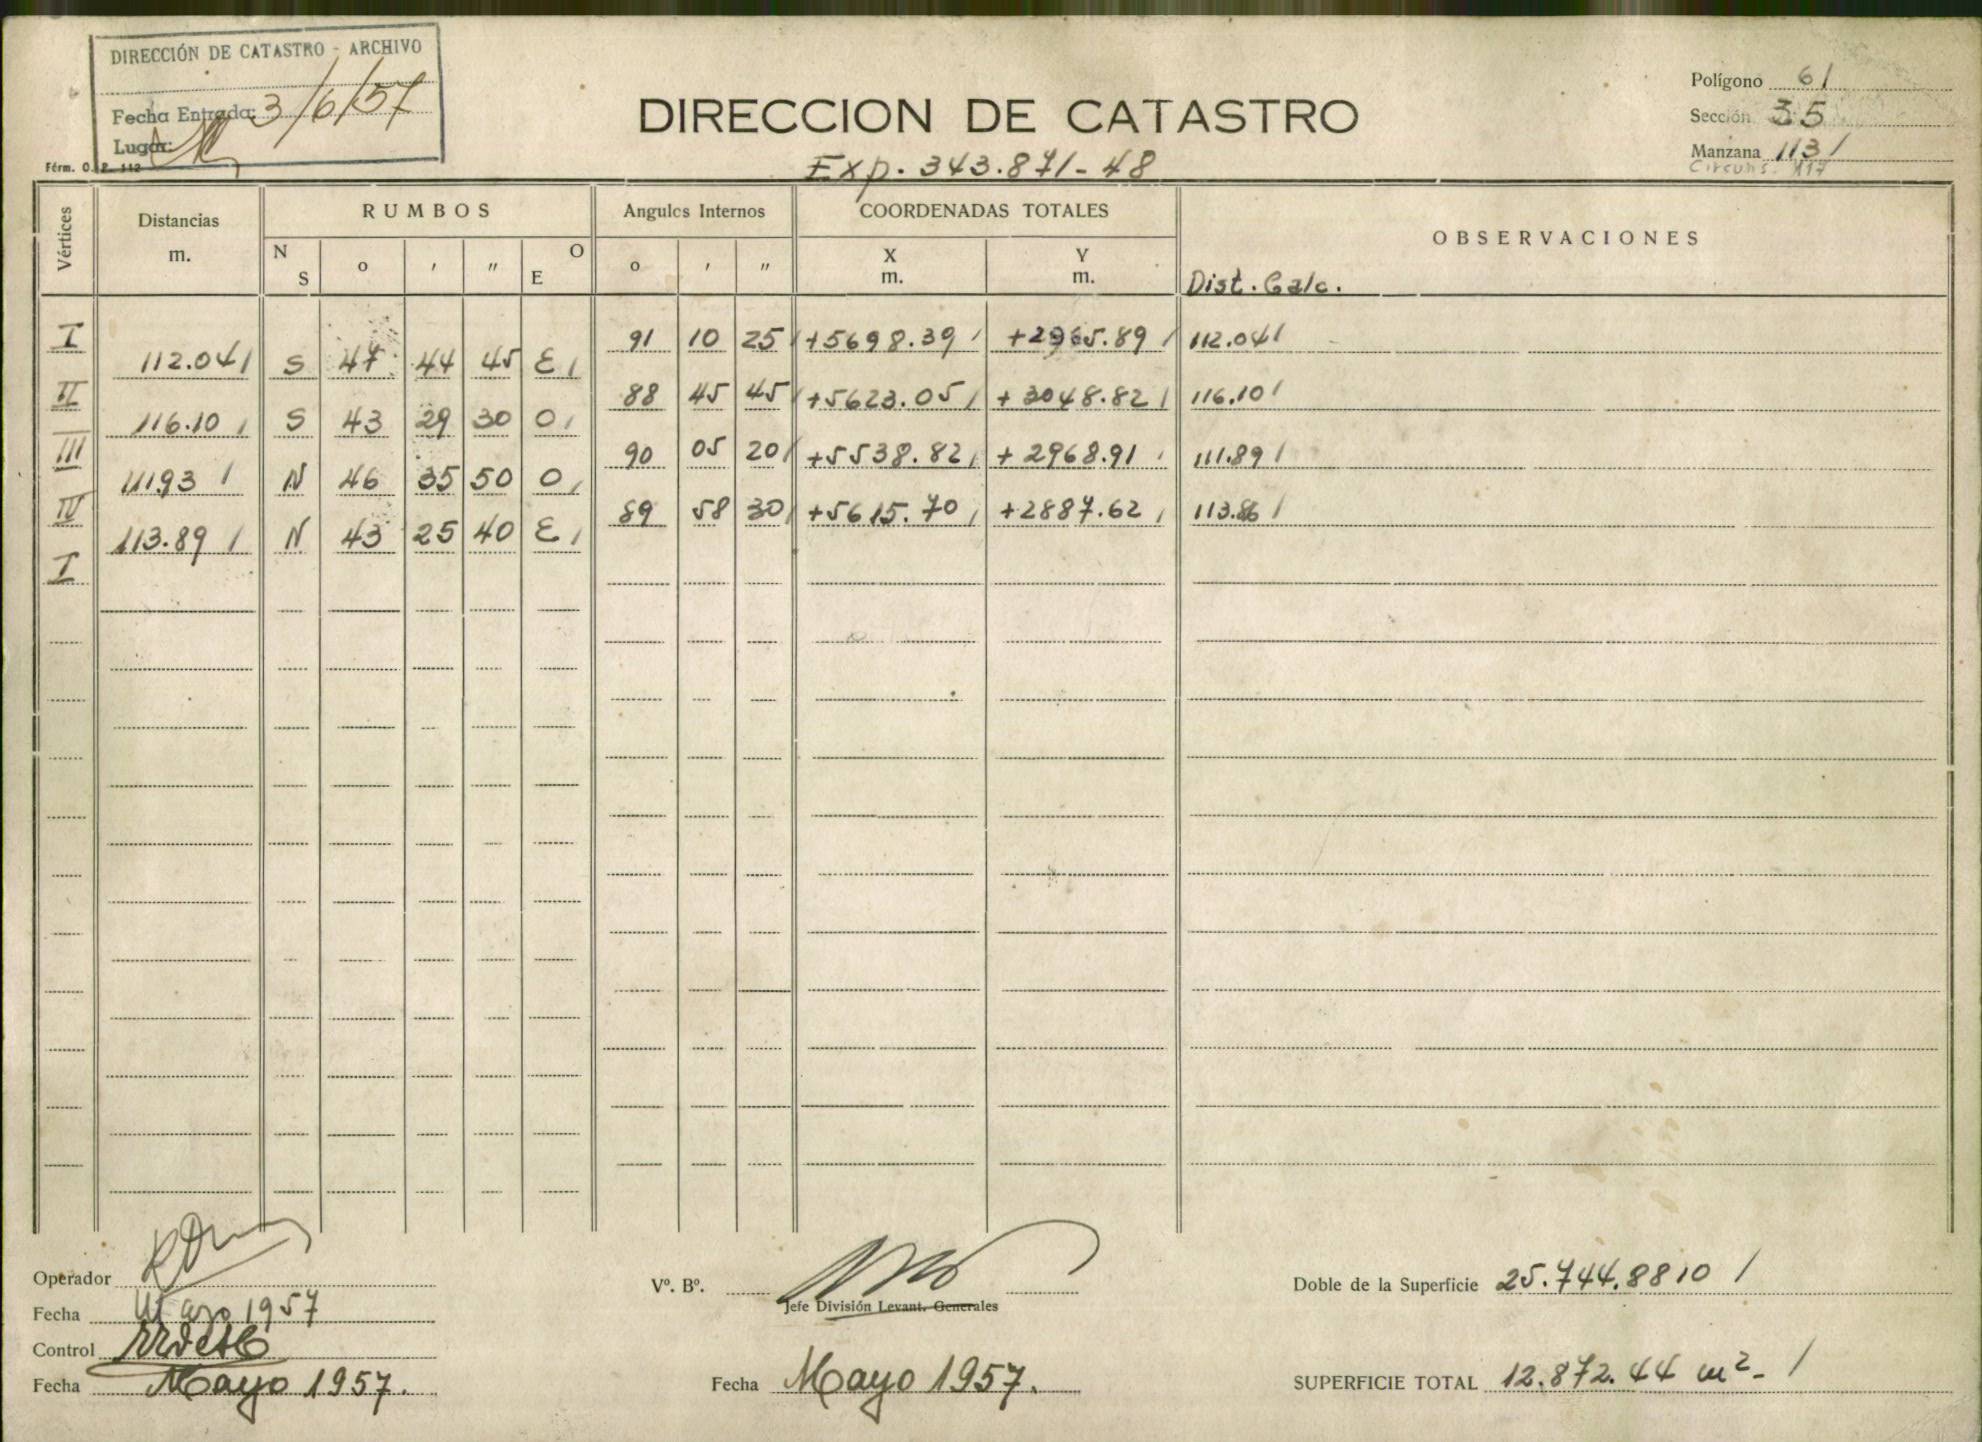 DIRECCIÓN DE CATASTRO - ARCHIVO
Fecha Entrada: 3/6/57
Lugar:
Fórm. O. P. 112
DIRECCION DE CATASTRO
Exp. 343.871-48
Polígono 61
Sección 35
Manzana 113 /
Circuns. 17
Vértices Distancias m. RUMBOS Angulos Internos COORDENADAS TOTALES OBSERVACIONES
N S o ' " O E o ' " X m. Y m. Dist. Calc.
I 91 10 25 / +5698.39 / +2965.89 / 112.04 /
112.04 / S 47 44 45 E /
II 88 45 45 / +5623.05 / +3048.82 / 116.10 /
116.10 / S 43 29 30 O /
III 90 05 20 / +5538.82 / +2968.91 / 111.89 /
111.93 / N 46 35 50 O /
IV 89 58 30 / +5615.70 / +2887.62 / 113.86 /
113.89 / N 43 25 40 E /
I
Operador
Fecha Mayo 1957
Control
Fecha Mayo 1957.
Vº. Bº.
Jefe División Levant. Generales
Fecha Mayo 1957.
Doble de la Superficie 25.744.8810 /
SUPERFICIE TOTAL 12.872.44 m²- /